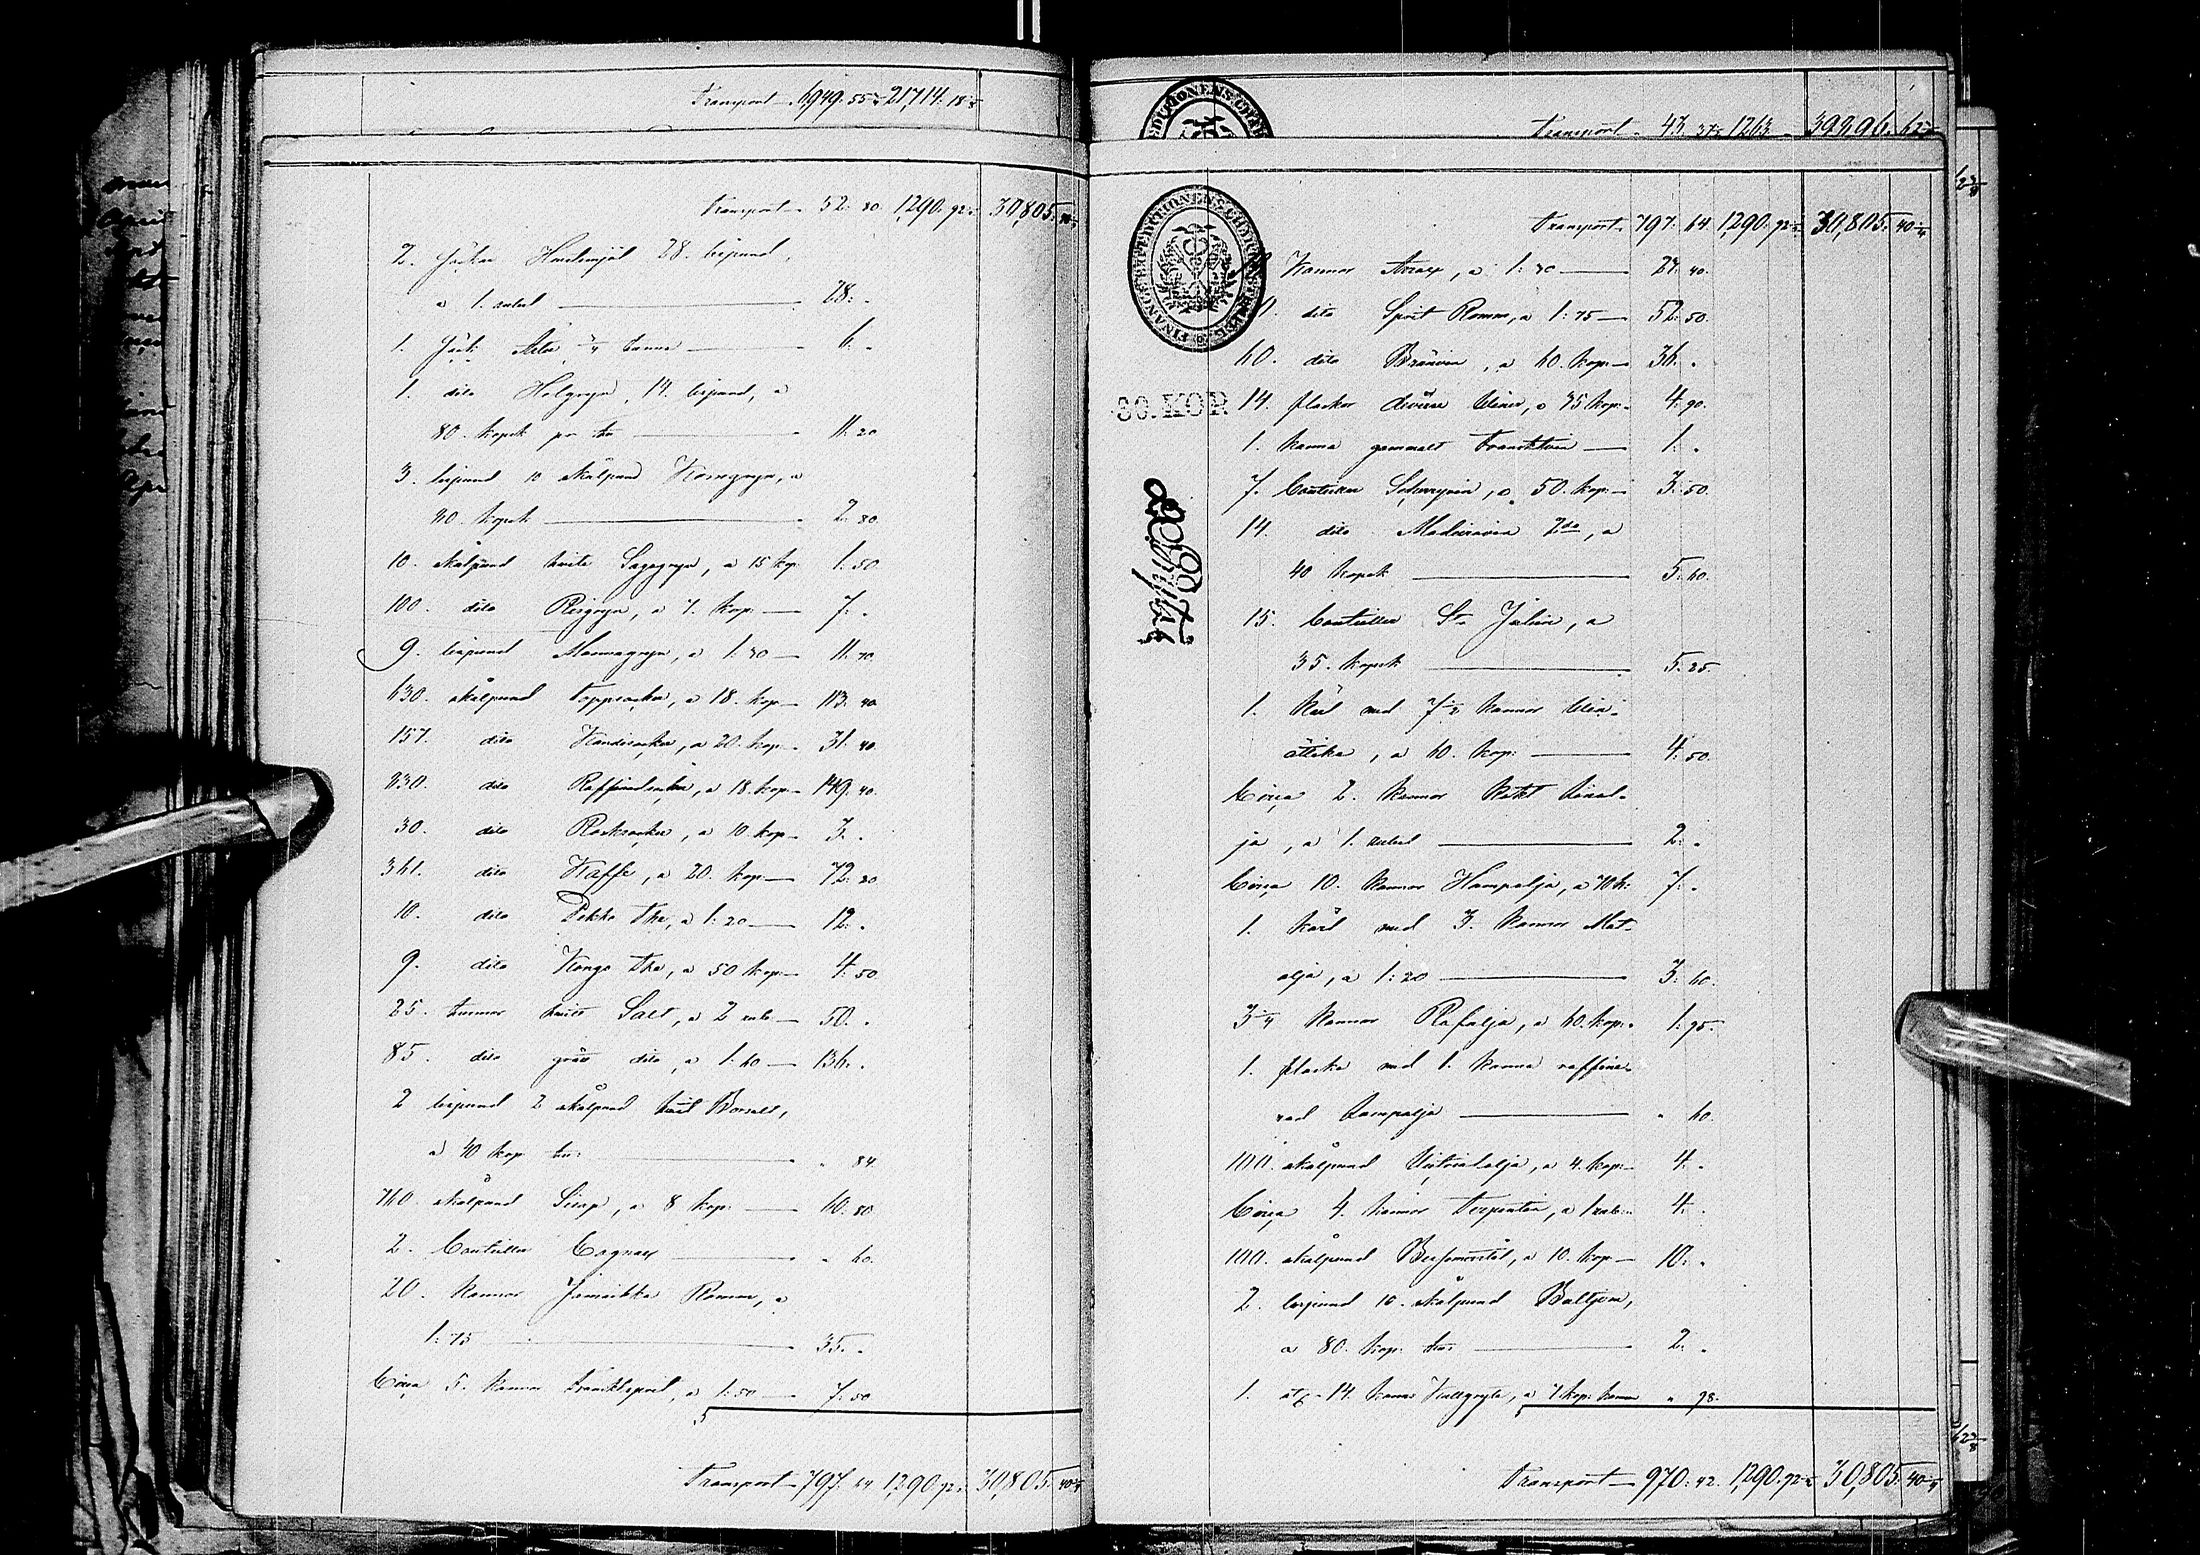 Transport 6949. 55 21,714. 18
Transport 52. 80 1,290. 92 30,805. 40
2. Säckar Hvetemjöl 28. lispund,
a 1. rubel — 28. „
1. Säck Ärter ¾ tunna — 6. „
1. dito Helgryn, 14. lispund, a
80. kopek pr — 11. 20
3. lispund 10 skålpund Korngryn, a
80. kopek — 2. 80
10. skålpund hvita Sagogryn, a 15 kop. 1. 50
100. dito Risgryn, a 7. kop. — 7. „
9. lispund Mannagryn, a 1: 30 — 11. 70
630. skålpund Toppsocker, a 18. kop. — 113. 40
157. dito Kandisocker, a 20. kop. — 31. 40
830. dito Raffinadsocker, a 18. kop. — 149. 40
30. dito Råsocker, a 10 kop. — 3. „
361. dito Kaffe, a 20. kop. — 72. 20
10. dito Pekko The, a 1: 20 — 12. „
9. dito Kongo The, a 50 kop. — 4. 50
25. tunnor hvitt Salt, a 2 rub. — 50. „
85. dito grått dito, a 1: 60 — 136. „
2 lispund 2 skålpund Bordsalt,
a 40 kop. — „ 84
760. skålpund Sirap, a 8 kop. — 60. 80
2. Bouteiller Cognac — „ 60.
20. kannor Jamaikka Romm, a
1: 75 — 35. „
Circa 5. kannor, a 1: 50 — 7. 50
Transport — 797. 64 1,290. 92 30,805. 40
Transport 43. 1263. 39896. 62
Transport 797. 64. 1,290. 92 30,805. 40
FINANCE EXPEDITIONENS
30. KOP.
Kannor Arrak, a 1: 40.
dito Sprit Romm, a 1: 75 — 52. 50.
60. dito Bränvin, a 60. kop. — 36. „
14. flaskor diverse Viner, a 35 kop. 4. 90.
1. kanna gammalt — 1. „
7. Bouteiller Scherryvin, a 50. kop. — 3. 50.
14. dito Madeiravin 2da, a
40 kopek — 5. 60.
15. Bouteiller St. Julien, a
35. kopek — 5. 25.
1. Kärl med 7½ kannor Vin-
ättika, a 60. kop. — 4. 50.
Circa 2. kannor kokt Linol-
ja, a 1. rubel — 2. „
Circa 10. kannor Hampolja, a 70 k. 7. „
1. kärl med 3. kannor Mat-
olja, a 1: 20 — 3. 60.
3¼ kannor Rofolja, a 60. kop. 1. 95.
1. flaska med 1. kanna raffine-
rad Lampolja — „ 60.
100. skålpund Victriololja, a 4. kop. — 4. „
Circa 4. kannor Terpentin, a 1 rub. — 4. „
100. skålpund, a 10. kop. — 10. „
2. lispund 10. skålpund,
a 80. kop. — 2. „
1. 14. kannor, a 7. kop. kanna „ 98.
Transport — 970. 42. 1,290. 92 30,805. 40